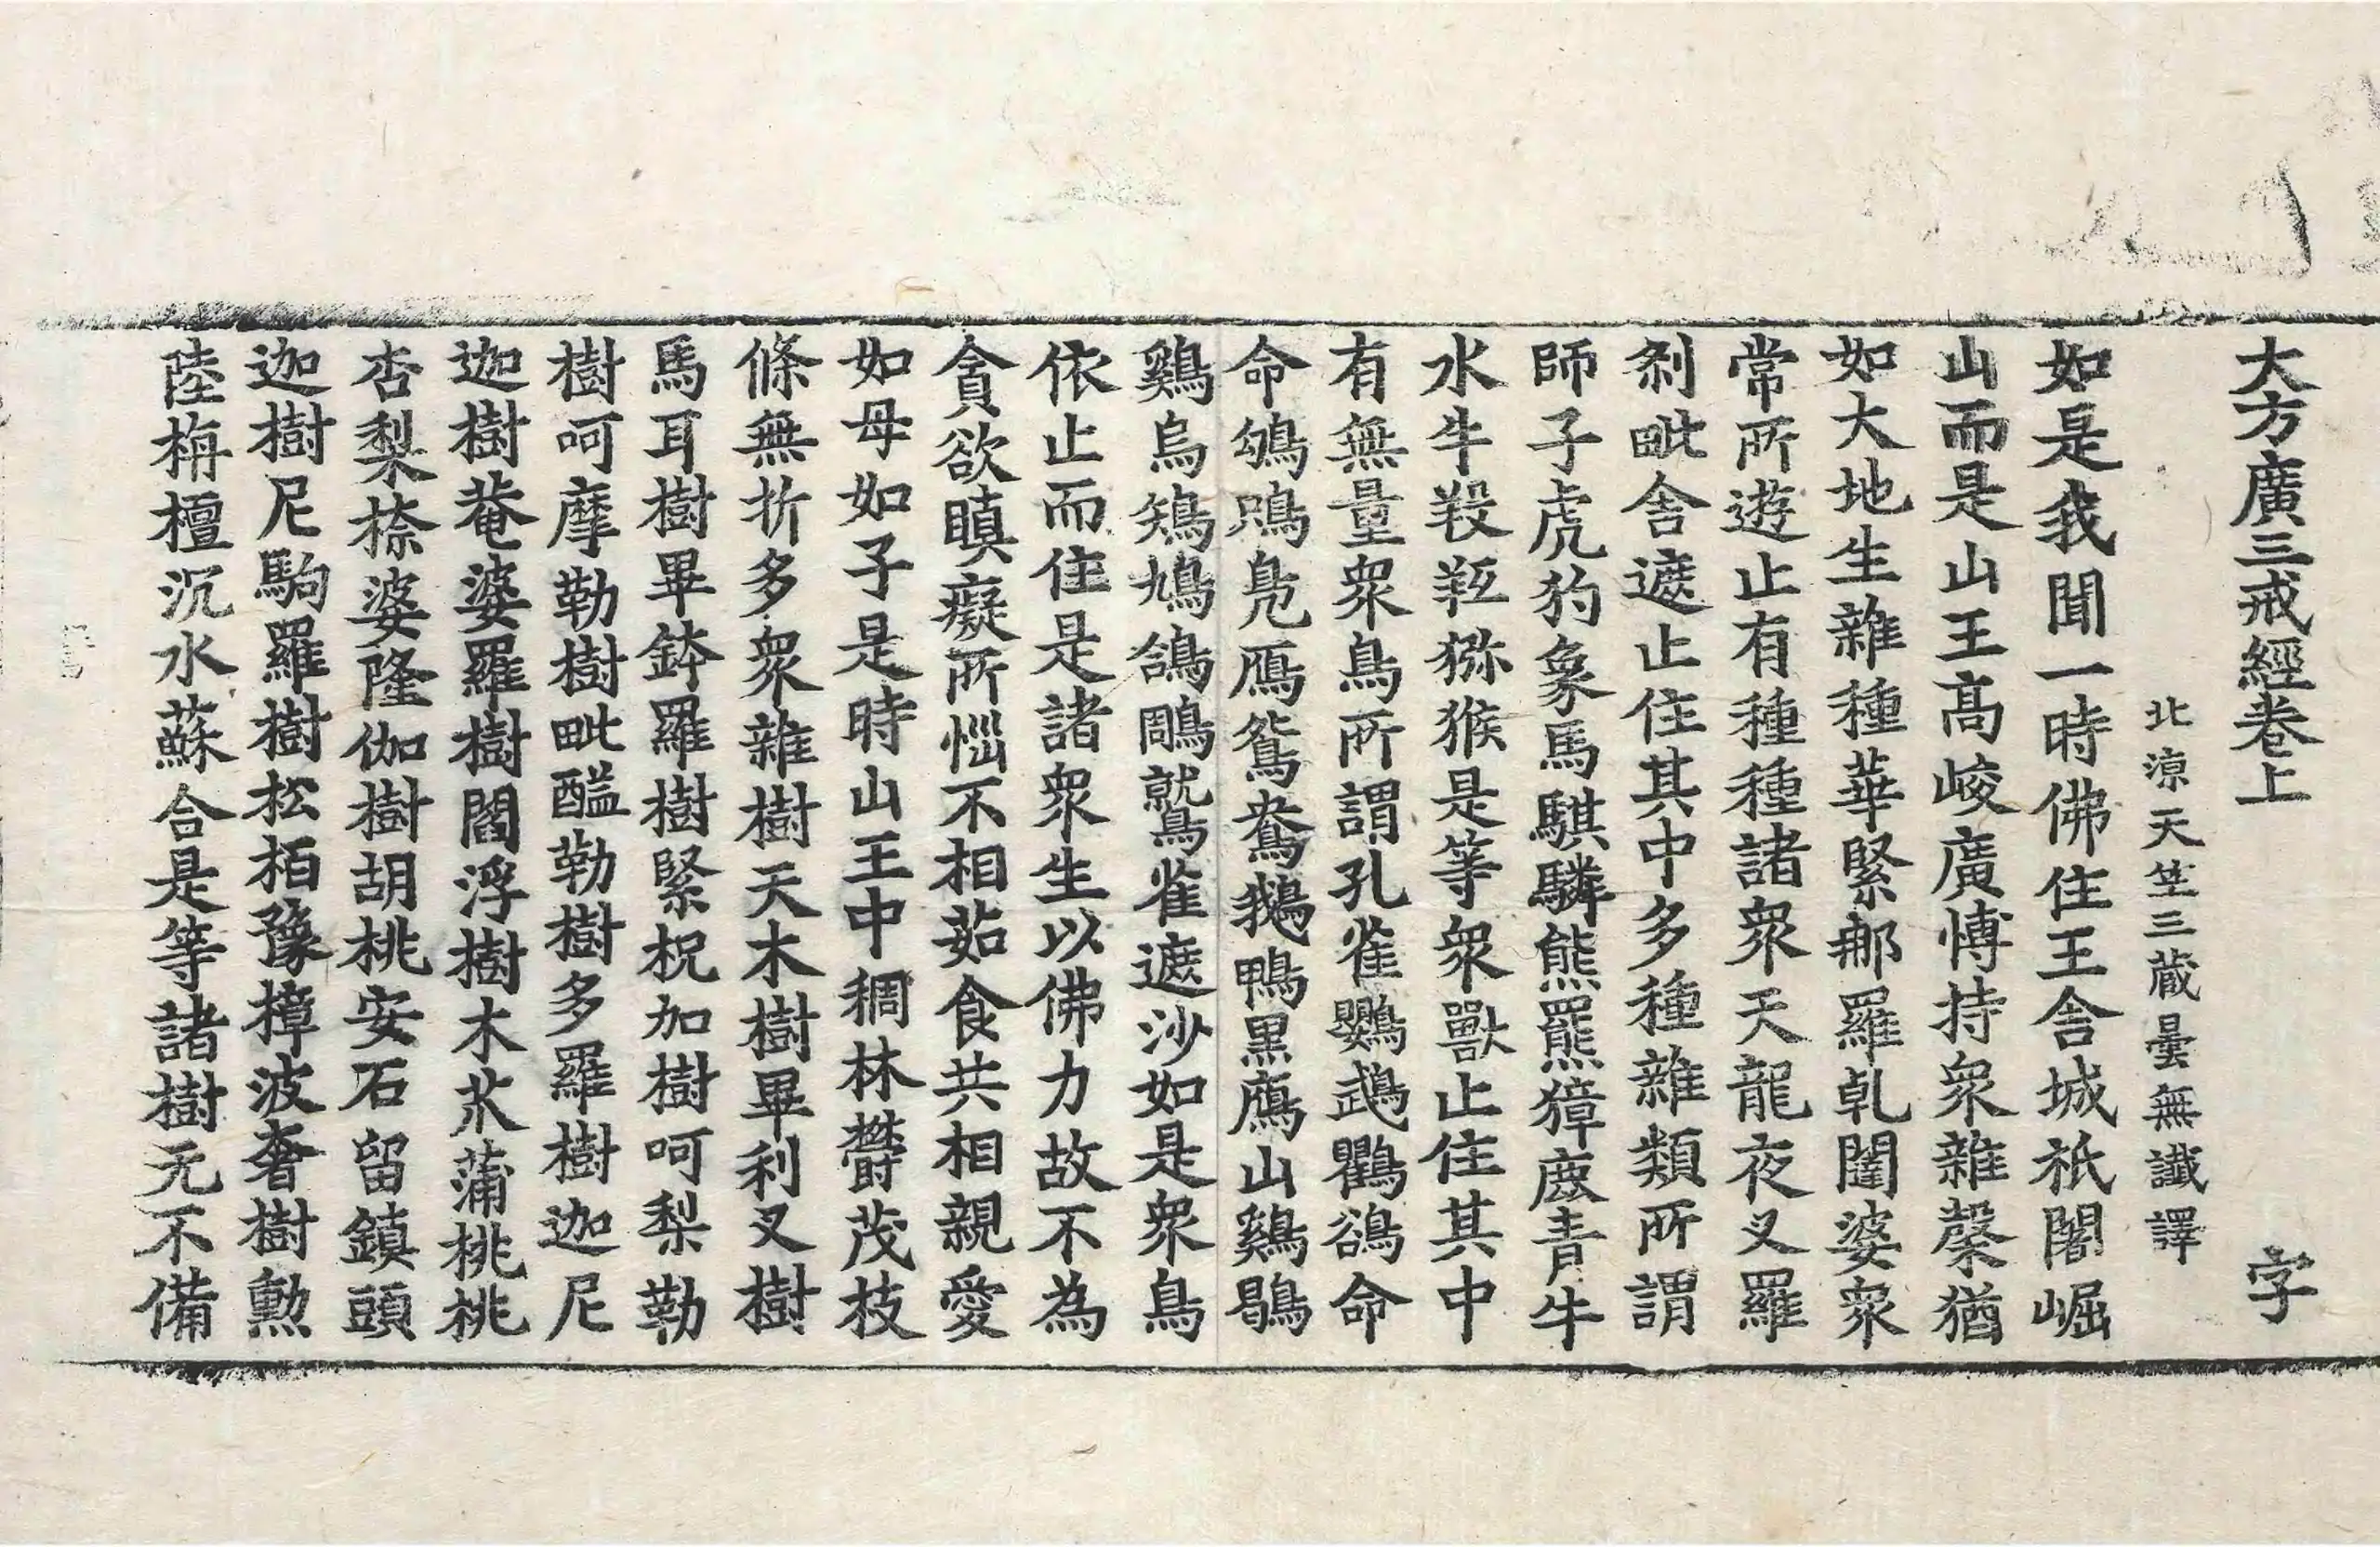 大方廣三戒經卷上　字
北涼天竺三藏曇無讖譯
如是我聞一時佛住王舍城祇闍崛
山而是山王高峻廣博持衆雜馨猶
如大地生雜種華緊那羅乹闥婆衆
常所遊止有種種諸衆天龍夜叉羅
刹毗舍遮止住其中多種雜類所謂
師子虎豹象馬騏驎熊羆獐鹿青牛
水牛羖羝猕猴是等衆獸止住其中
有無量衆鳥所謂孔雀鸚鵡鸜鵒命
命鴝鴞鳧鴈鴛鴦鵝鴨黑鷹山鷄鶡
鷄烏鵄鳩鴿鵰鷲雀遮沙如是衆鳥
依止而住是諸衆生以佛力故不為
貪欲瞋癡所惱不相茹食共相親愛
如母如子是時山王中稠林欝茂枝
條無折多衆雜樹天木樹畢利叉樹
馬耳樹畢鉢羅樹緊柷加樹呵梨勒
樹呵摩勒樹毗醯勒樹多羅樹迦尼
迦樹菴婆羅樹閻浮樹木蒲桃桃
杏梨㮈婆隆伽樹胡桃安石留鎮頭
迦樹尼駒羅樹松栢豫樟波奢樹勳
陸栴檀沉水蘇合是等諸樹无不備